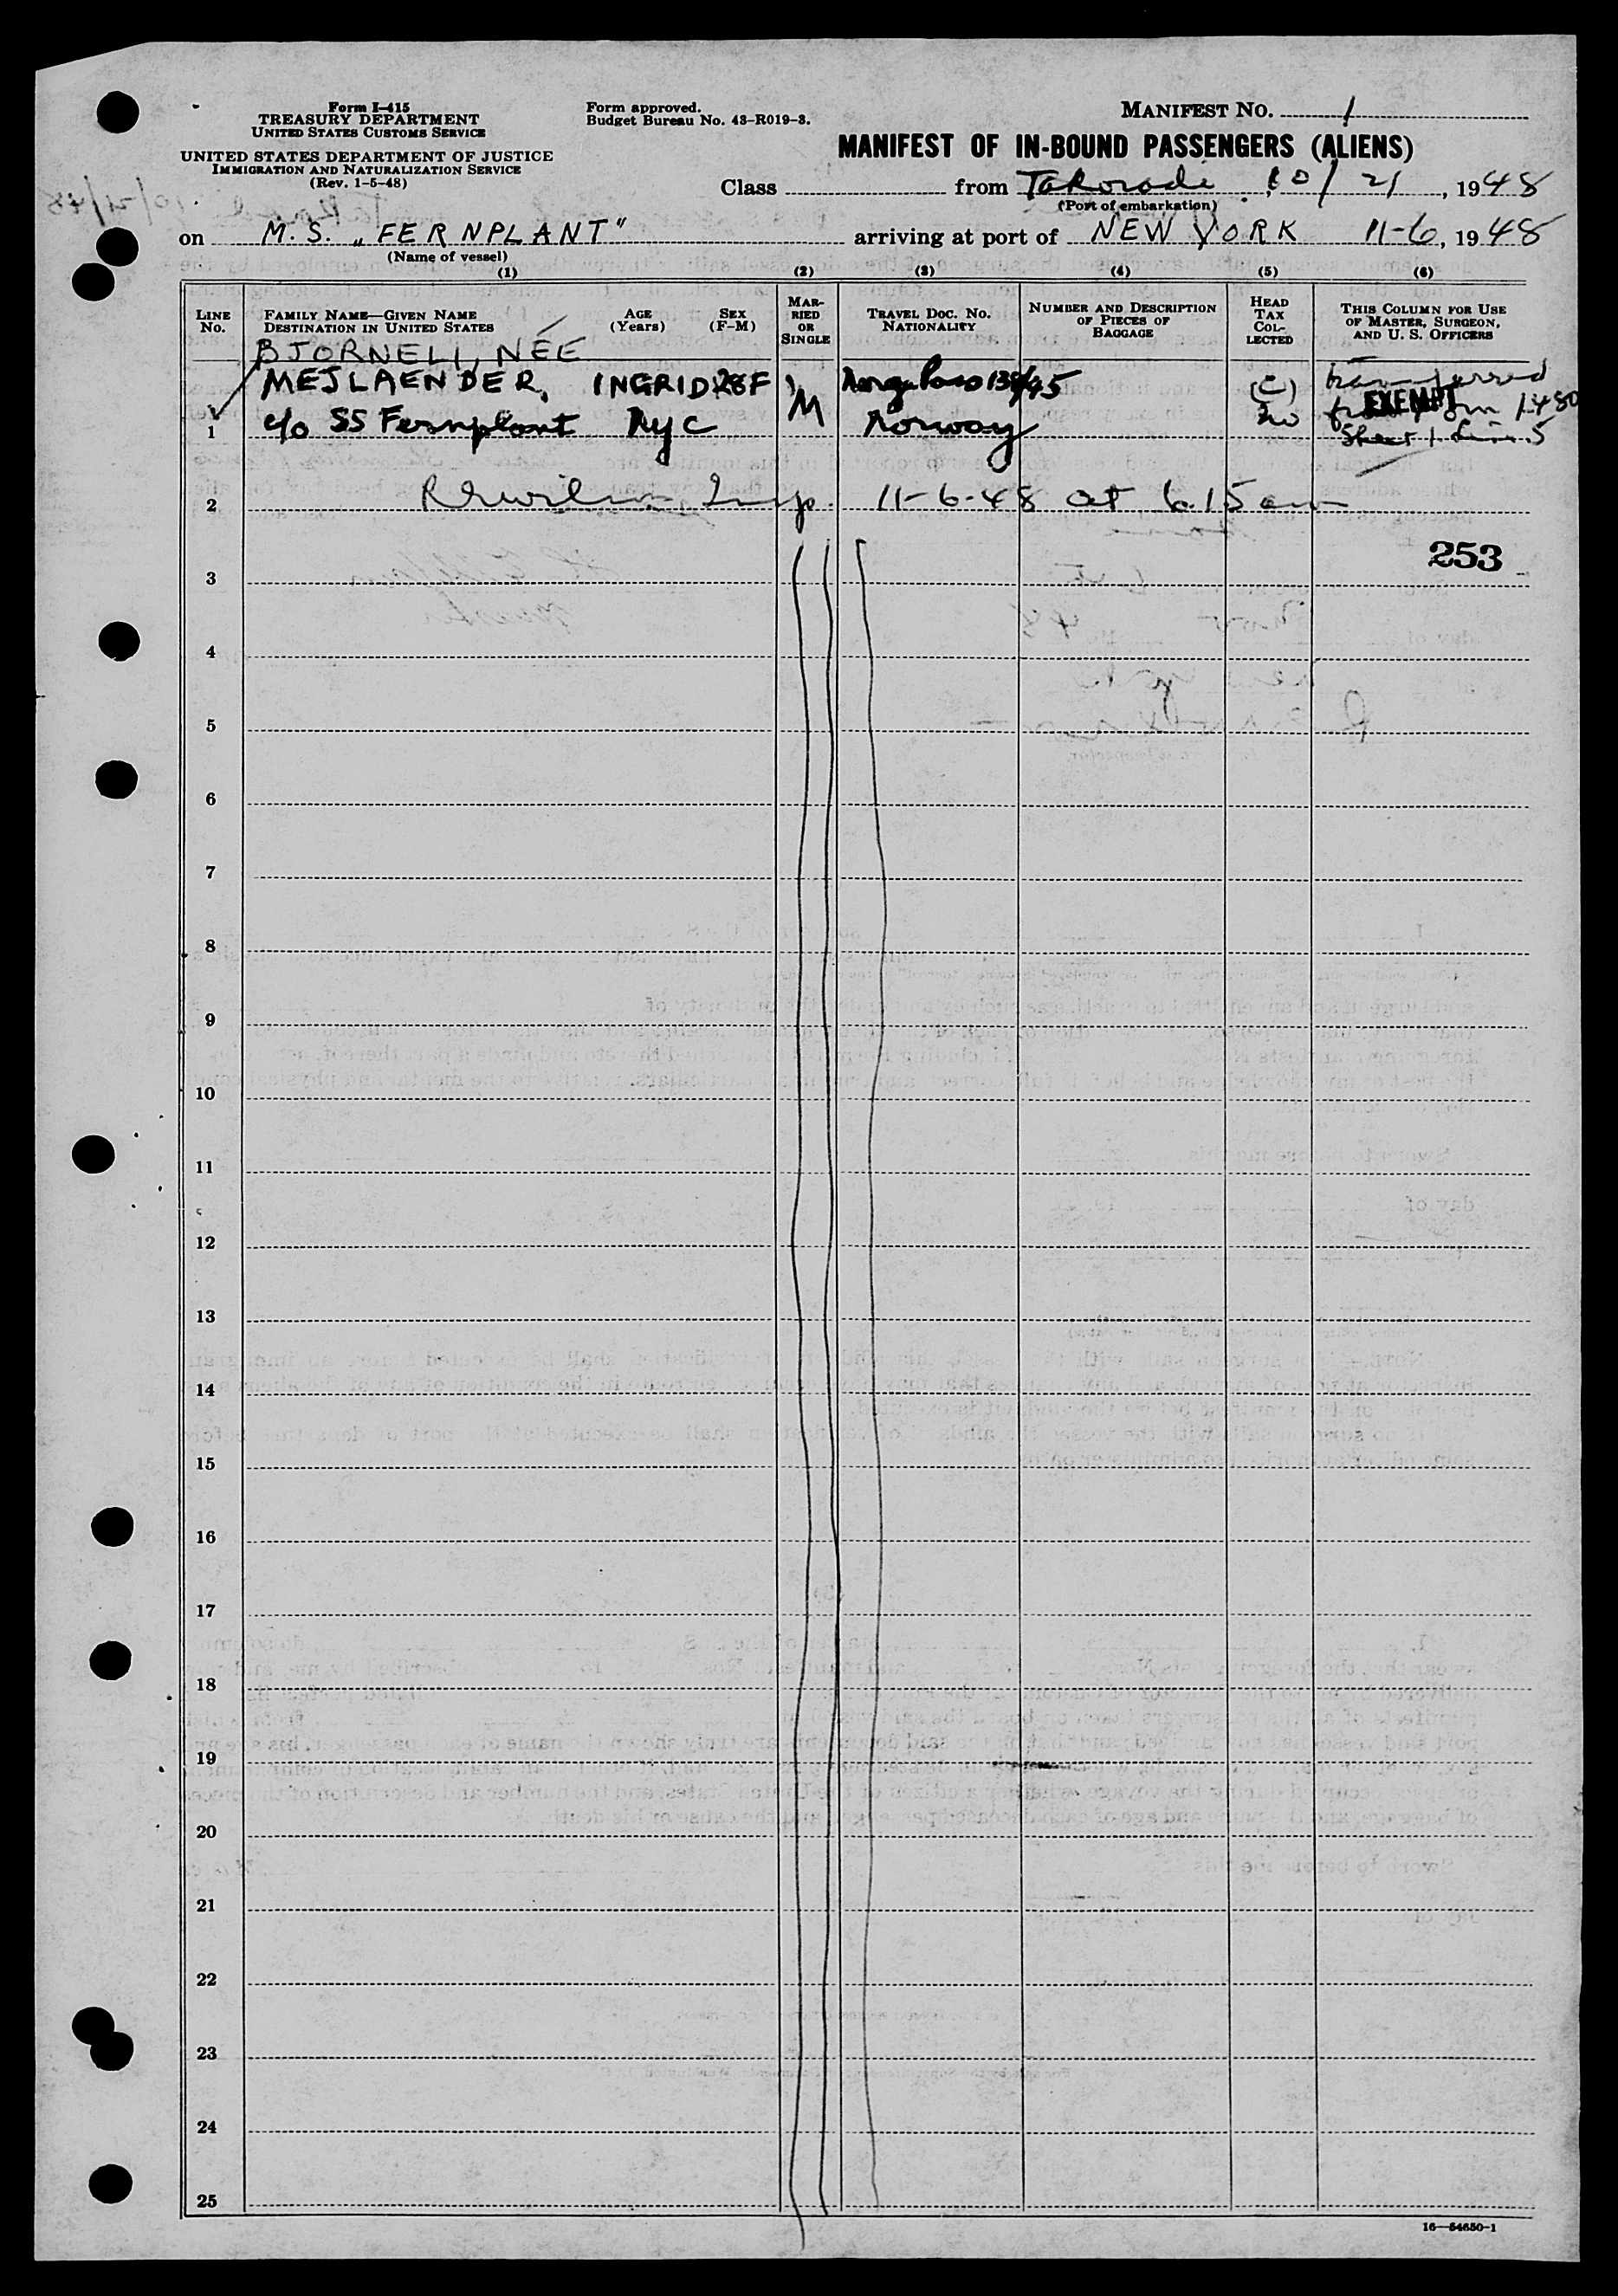 Form I-415
TREASURY DEPARTMENT
UNITED STATES CUSTOMS SERVICE
UNITED STATES DEPARTMENT OF JUSTICE
IMMIGRATION AND NATURALIZATION SERVICE
(Rev. 1-5-48)
Form approved.
Budget Bureau No. 43-R019-3.
MANIFEST NO. 1
MANIFEST OF IN-BOUND PASSENGERS (ALIENS)
Class from Takoradi, 10/21, 1948
(Port of embarkation)
on M.S. „FERNPLANT" arriving at port of NEW YORK 11-6, 1948
(Name of vessel)
(1) (2) (3) (4) (5) (6)
LINE No.
FAMILY NAME—GIVEN NAME
DESTINATION IN UNITED STATES
AGE (Years)
SEX (F-M)
MARRIED OR SINGLE
TRAVEL DOC. NO.
NATIONALITY
NUMBER AND DESCRIPTION OF PIECES OF BAGGAGE
HEAD TAX COLLECTED
THIS COLUMN FOR USE OF MASTER, SURGEON, AND U. S. OFFICERS
BJORNELL, NÉE
MEJLAENDER, INGRID 28 F
1 c/o SS Fernplant NYC M Norway (C) no
transferred
EXEMPT
from Form I 480
Sheet 1 Line 5
2 Insp. 11-6-48 at 6.15 am
253
3
4
5
6
7
8
9
10
11
12
13
14
15
16
17
18
19
20
21
22
23
24
25
16—54650-1